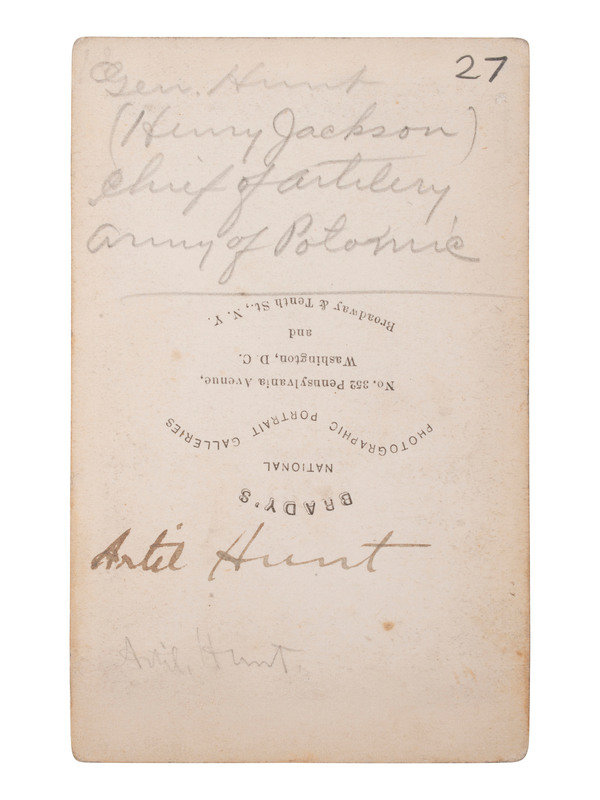 27
Gen. Hunt
(Henry Jackson)
Chief of Artilery
Army of Potomic
BRADY'S
NATIONAL
PHOTOGRAPHIC PORTRAIT GALLERIES
No. 352 Pennsylvania Avenue,
Washington, D. C.
and
Broadway & Tenth St., N. Y.
Artil Hunt
Artil. Hunt.